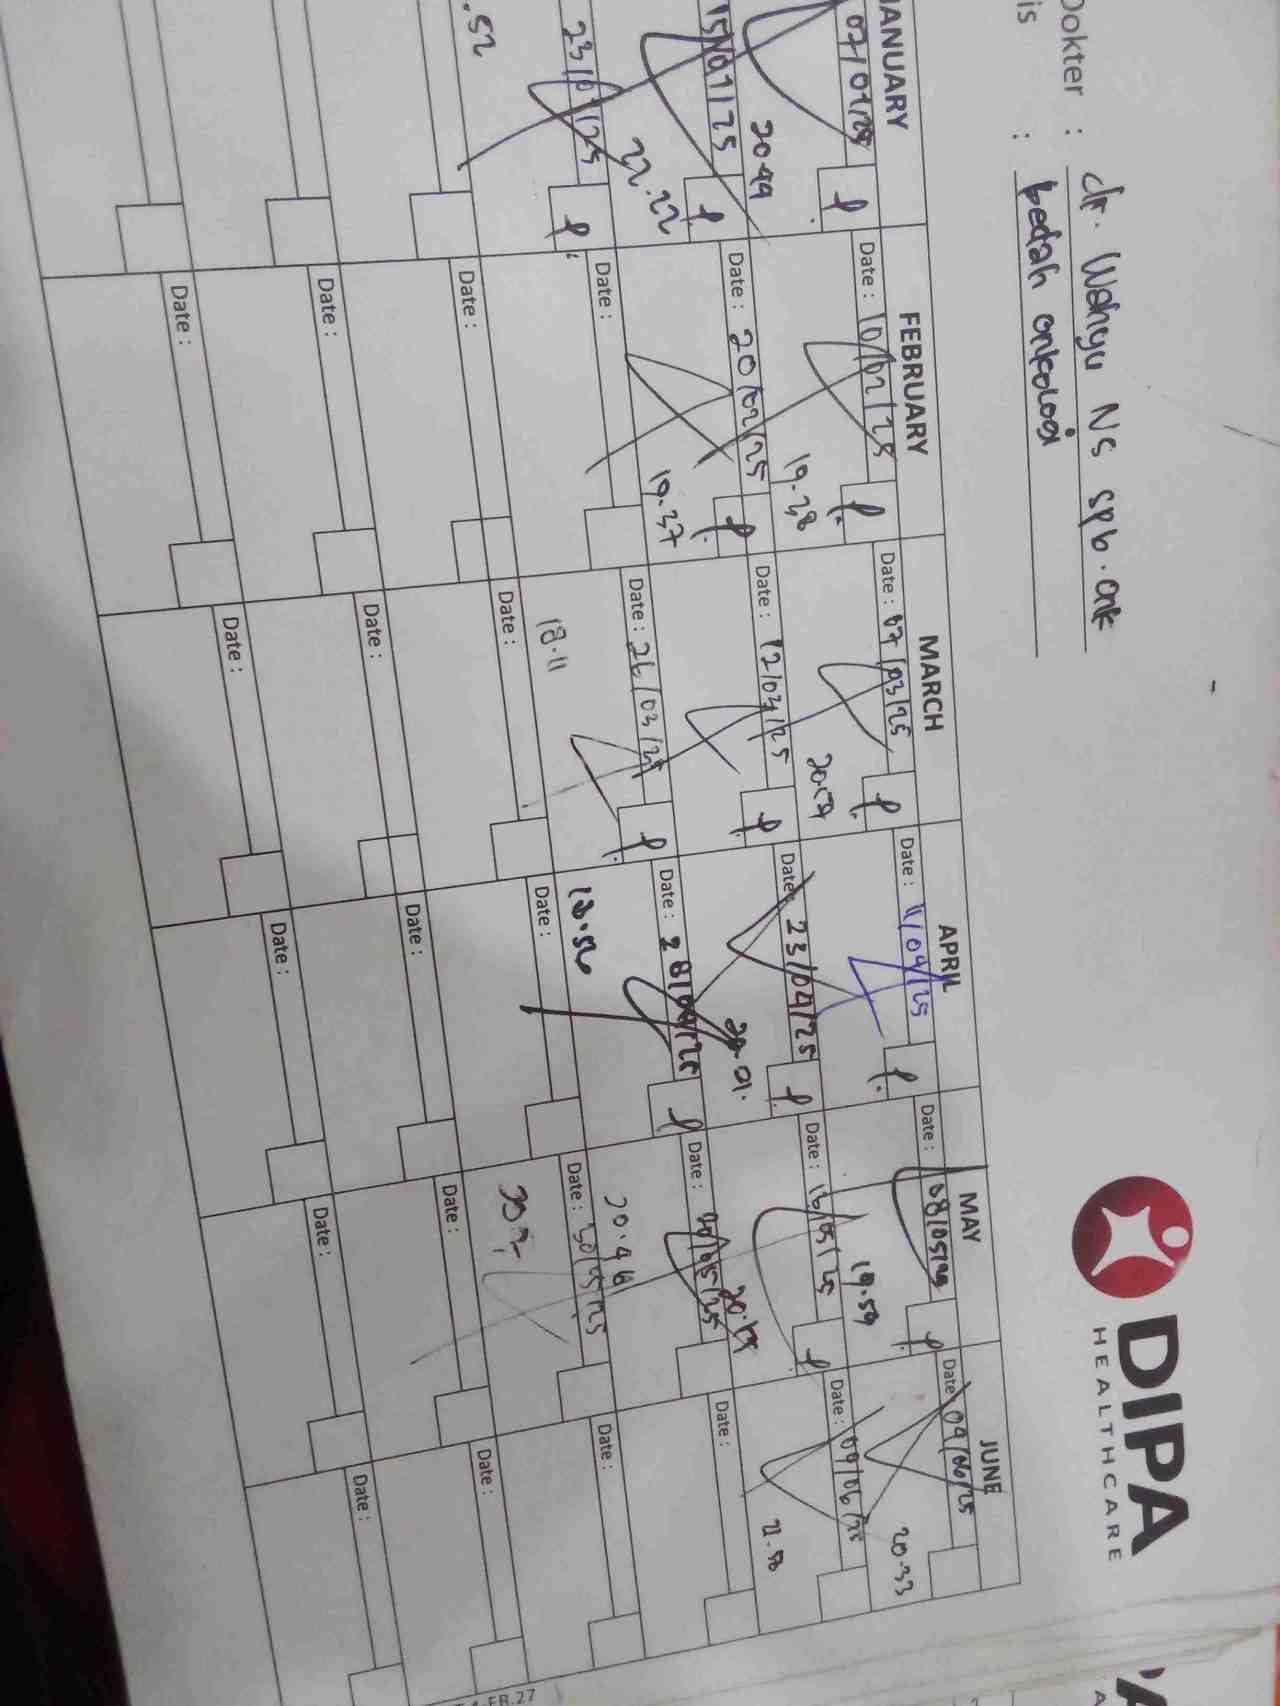 DIPA
HEALTHCARE
Dokter : dr. Wahyu NS spb.onk
is : bedah onkologi
JANUARY
FEBRUARY
MARCH
APRIL
MAY
JUNE
07/01/25
Date : 10/02/25
Date : 07/03/25
Date : 11/04/25
Date : 08/05/25
Date : 04/06/25
20.49
19.38
19.59
20.33
15/01/25
Date : 20/02/25
Date : 12/03/25
Date : 23/04/25
Date : 16/05/25
Date : 09/06/25
22.22
19.37
20.01.
21.50
23/01/25
Date :
Date : 26/03/25
Date : 28/04/25
Date : 20/05/25
Date :
.52
18.11
18.56
20.46
Date :
Date :
Date :
Date : 30/05/25
Date :
Date :
Date :
Date :
Date :
Date :
Date :
Date :
Date :
Date :
Date :
FR.27